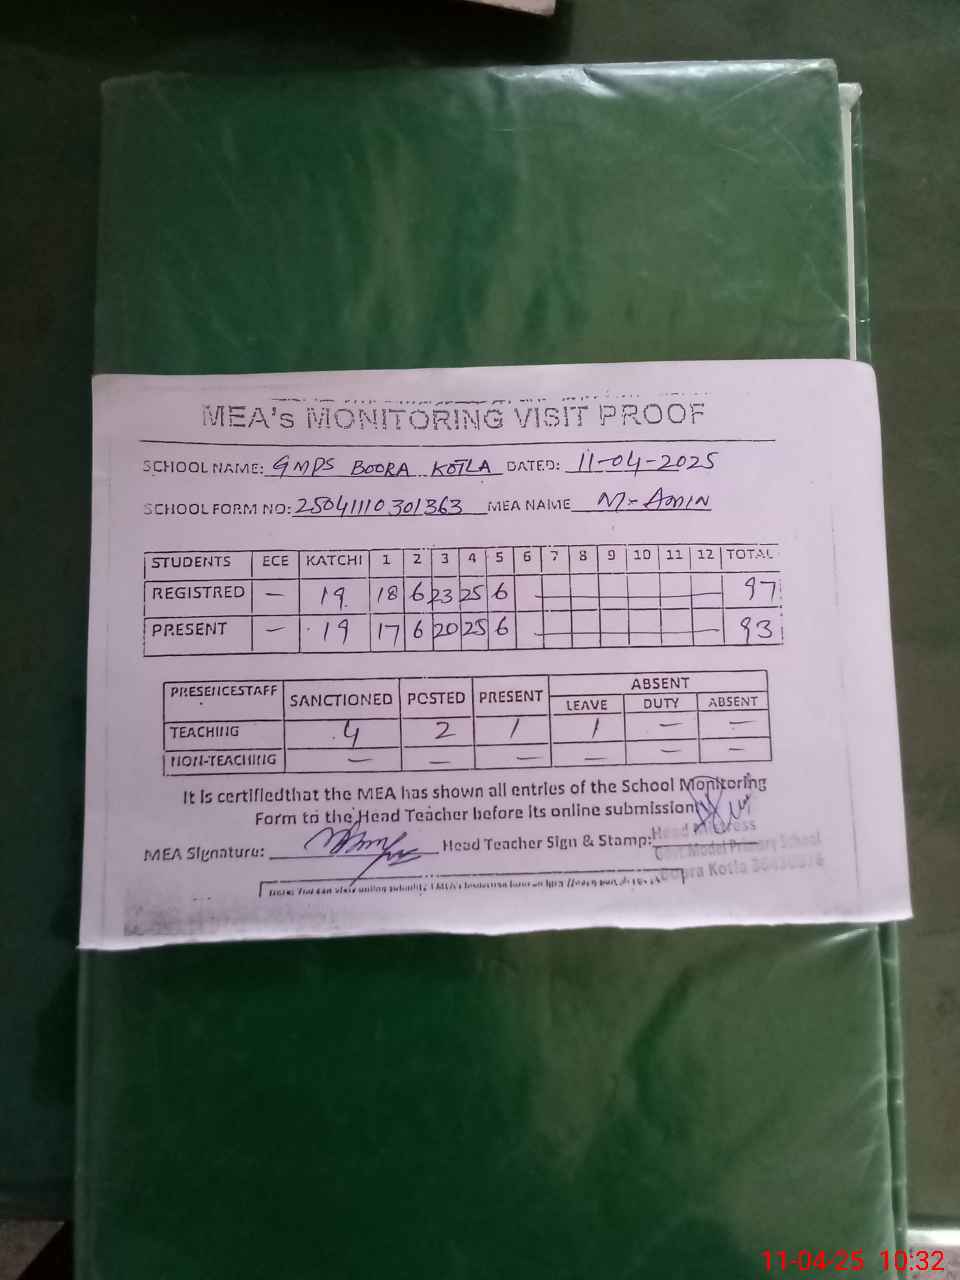 MEA's MONITORING VISIT PROOF
SCHOOL NAME: GMPS BOORA KOTLA DATED: 11-04-2025
SCHOOL FORM NO: 25041110301363 MEA NAME M-AMIN
STUDENTS ECE KATCHI 1 2 3 4 5 6 7 8 9 10 11 12 TOTAL
REGISTRED — 19 18 6 23 25 6 97
PRESENT — 19 17 6 20 25 6 93
PRESENCESTAFF SANCTIONED POSTED PRESENT ABSENT
LEAVE DUTY ABSENT
TEACHING 4 2 1 1 — —
NON-TEACHING — — — — — —
It is certifiedthat the MEA has shown all entries of the School Monitoring
Form to the Head Teacher before its online submission
MEA Signature: Head Teacher Sign & Stamp:
Head Mistress
Govt Model Primary School
Kotla
11-04-25 10:32